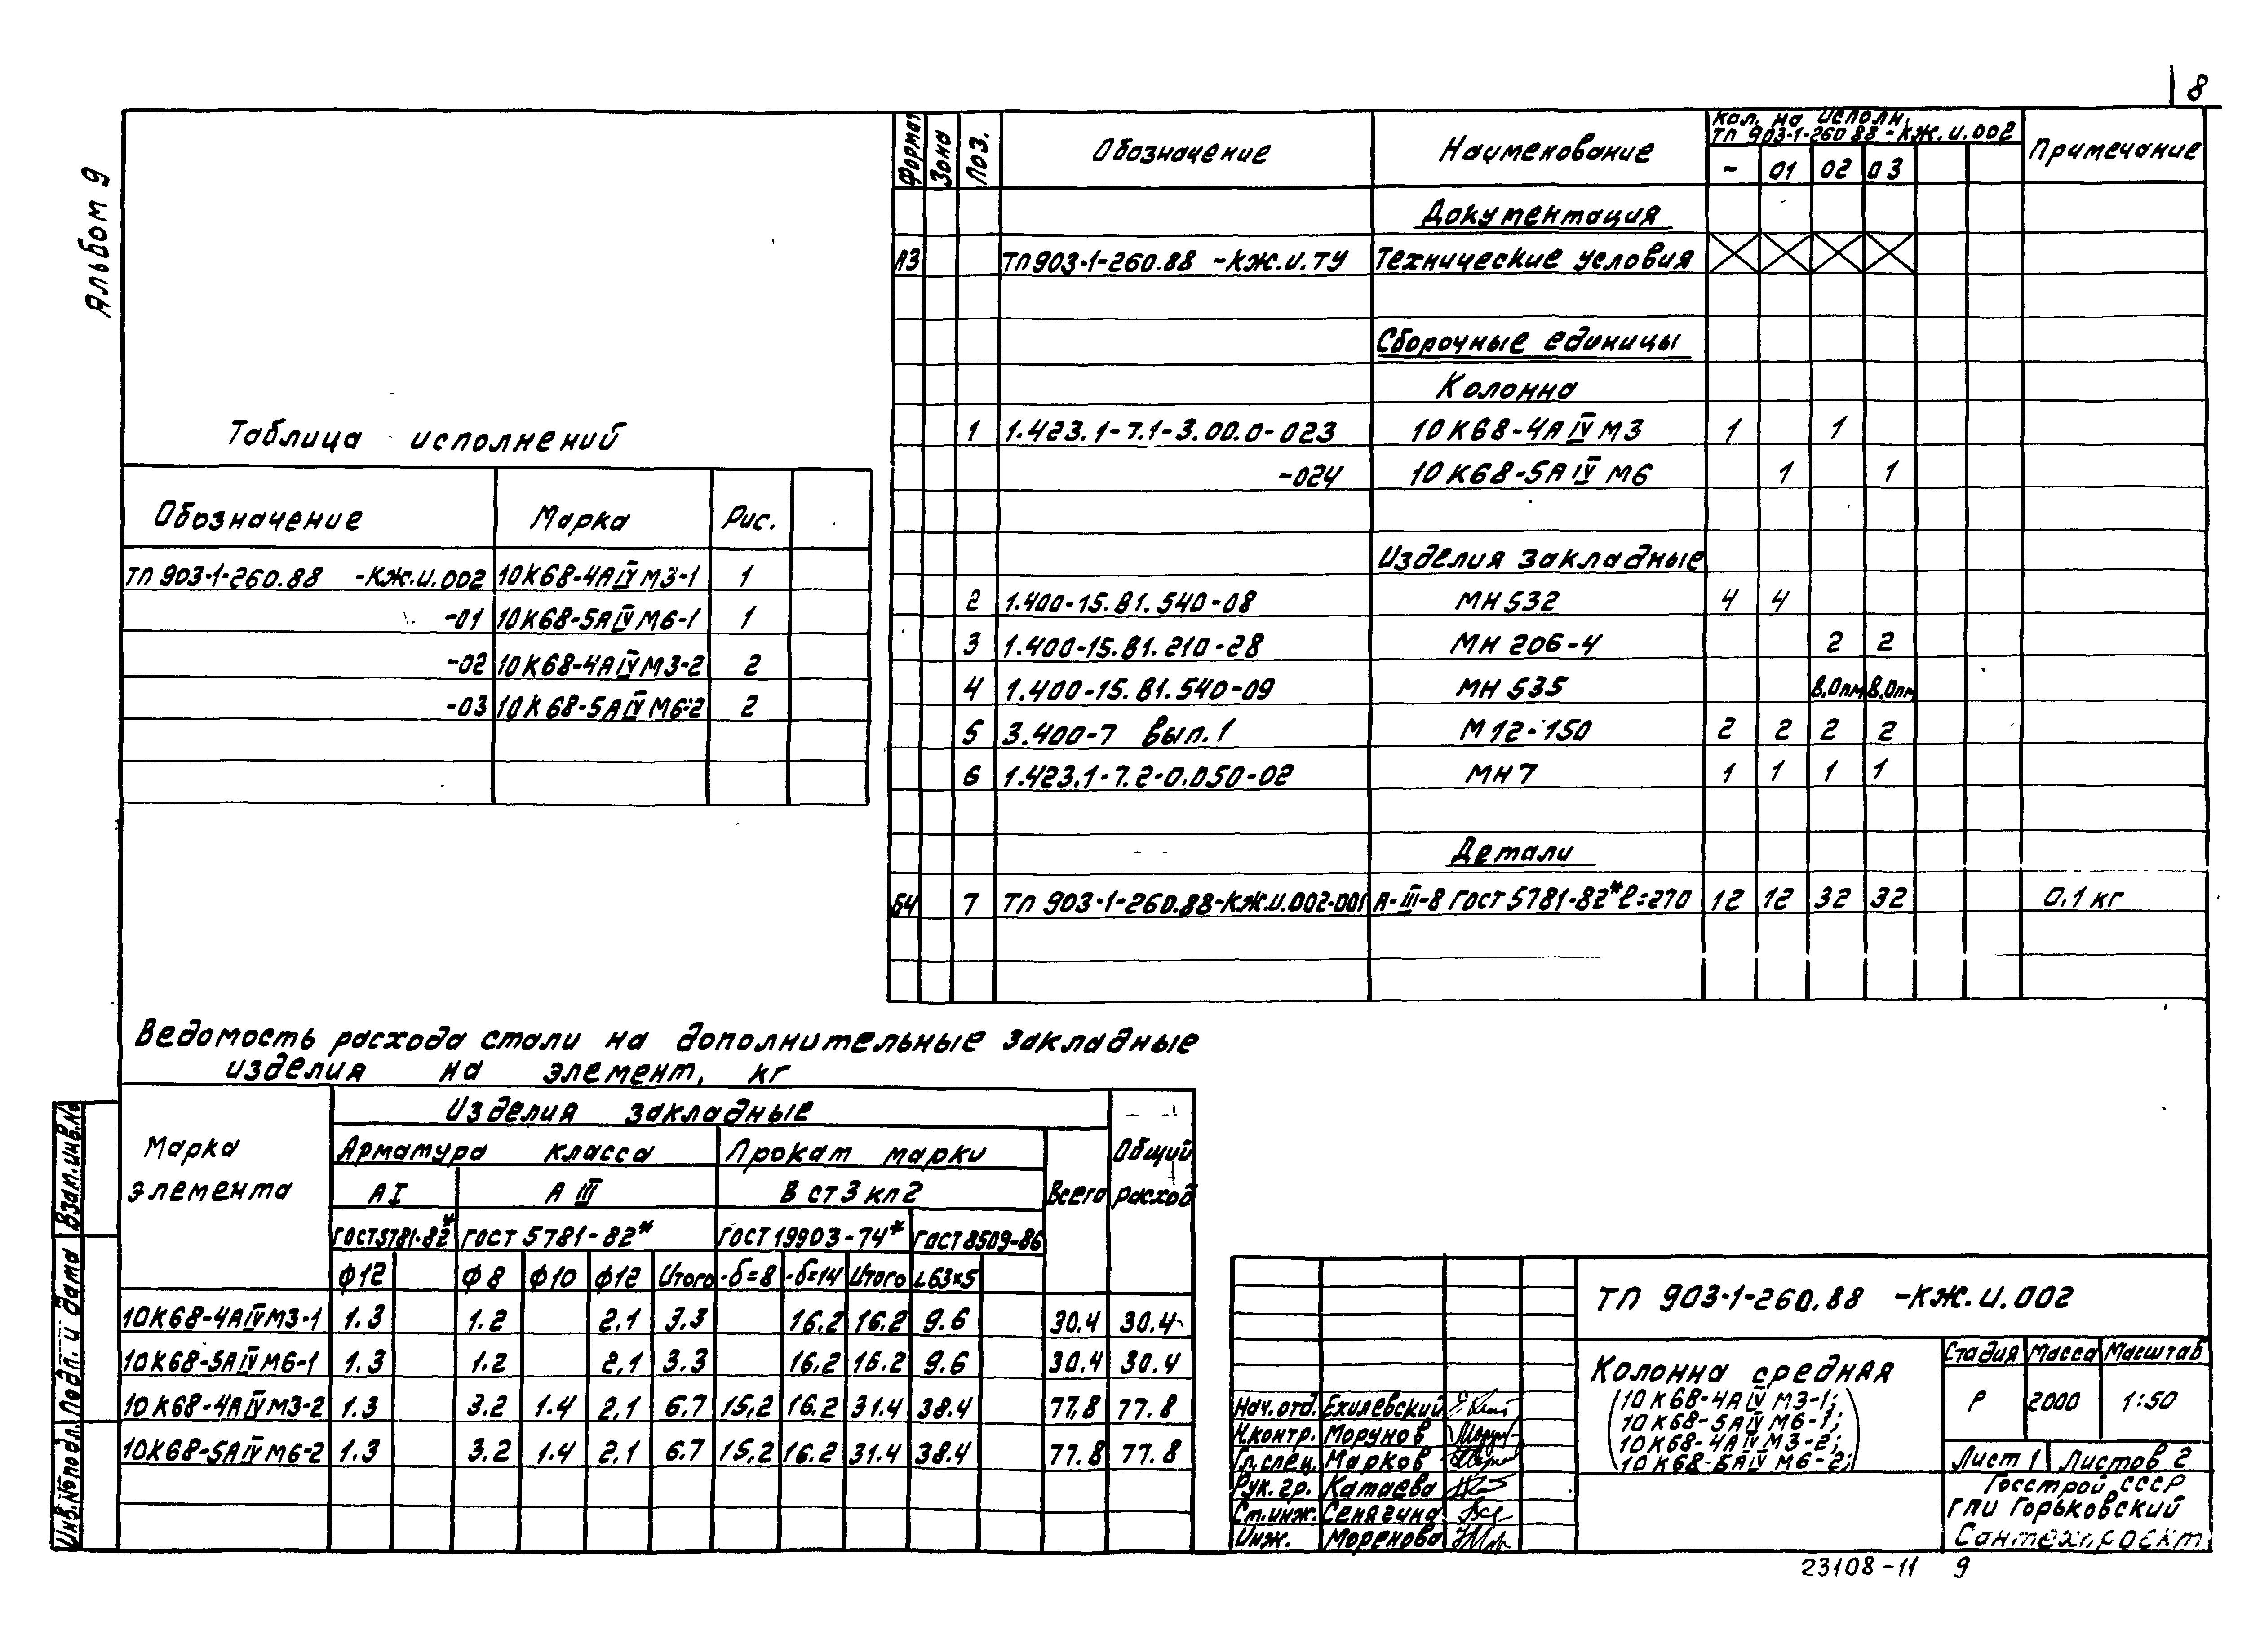 8
Альбом 9
Формат Зона Поз. Обозначение Наименование Кол. на исполн. ТП 903-1-260.88-КЖ.И.002 Примечание
- 01 02 03
Документация
А3 ТП 903-1-260.88 -КЖ.И.ТУ Технические условия
Сборочные единицы
Колонна
1 1.423.1-7.1-3.00.0-023 10К68-4АIVМ3 1 1
-024 10К68-5АIVМ6 1 1
Изделия закладные
2 1.400-15.В1.540-08 МН 532 4 4
3 1.400-15.В1.210-28 МН 206-4 2 2
4 1.400-15.В1.540-09 МН 535 8,0пм 8,0пм
5 3.400-7 вып.1 М12-150 2 2 2 2
6 1.423.1-7.2-0.050-02 МН7 1 1 1 1
Детали
Б4 7 ТП 903-1-260.88-КЖ.И.002-001 А-III-8 ГОСТ 5781-82* ℓ=270 12 12 32 32 0,1 кг
Таблица исполнений
Обозначение Марка Рис.
ТП 903-1-260.88 -КЖ.И.002 10К68-4АIVМ3-1 1
-01 10К68-5АIVМ6-1 1
-02 10К68-4АIVМ3-2 2
-03 10К68-5АIVМ6-2 2
Ведомость расхода стали на дополнительные закладные
изделия на элемент, кг
Марка элемента Изделия закладные Общий расход
Арматура класса Прокат марки Всего
АI АIII В ст3 кп2
ГОСТ 5781-82* ГОСТ 5781-82* ГОСТ 19903-74* ГОСТ 8509-86
Ф12 Ф8 Ф10 Ф12 Итого -δ=8 -δ=14 Итого L63×5
10К68-4АIVМ3-1 1.3 1.2 2,1 3.3 16.2 16.2 9.6 30.4 30.4
10К68-5АIVМ6-1 1.3 1.2 2,1 3.3 16,2 16.2 9.6 30.4 30.4
10К68-4АIVМ3-2 1.3 3.2 1.4 2,1 6,7 15,2 16.2 31.4 38.4 77.8 77.8
10К68-5АIVМ6-2 1.3 3.2 1.4 2,1 6.7 15,2 16.2 31.4 38.4 77.8 77.8
Взам.инв.№
Подп. и дата
Инв.№ подл.
ТП 903-1-260.88 -КЖ.И.002
Колонна средняя
(10К68-4АIVМ3-1;
10К68-5АIVМ6-1;
10К68-4АIVМ3-2;
10К68-5АIVМ6-2;)
Стадия Масса Масштаб
Р 2000 1:50
Лист 1 Листов 2
Госстрой СССР
ГПИ Горьковский
Сантехпроект
Нач.отд. Ехилевский
Н.контр. Морунов
Гл.спец. Марков
Рук. гр. Катаева
Ст.инж. Сенягина
Инж. Моренова
23108-11 9